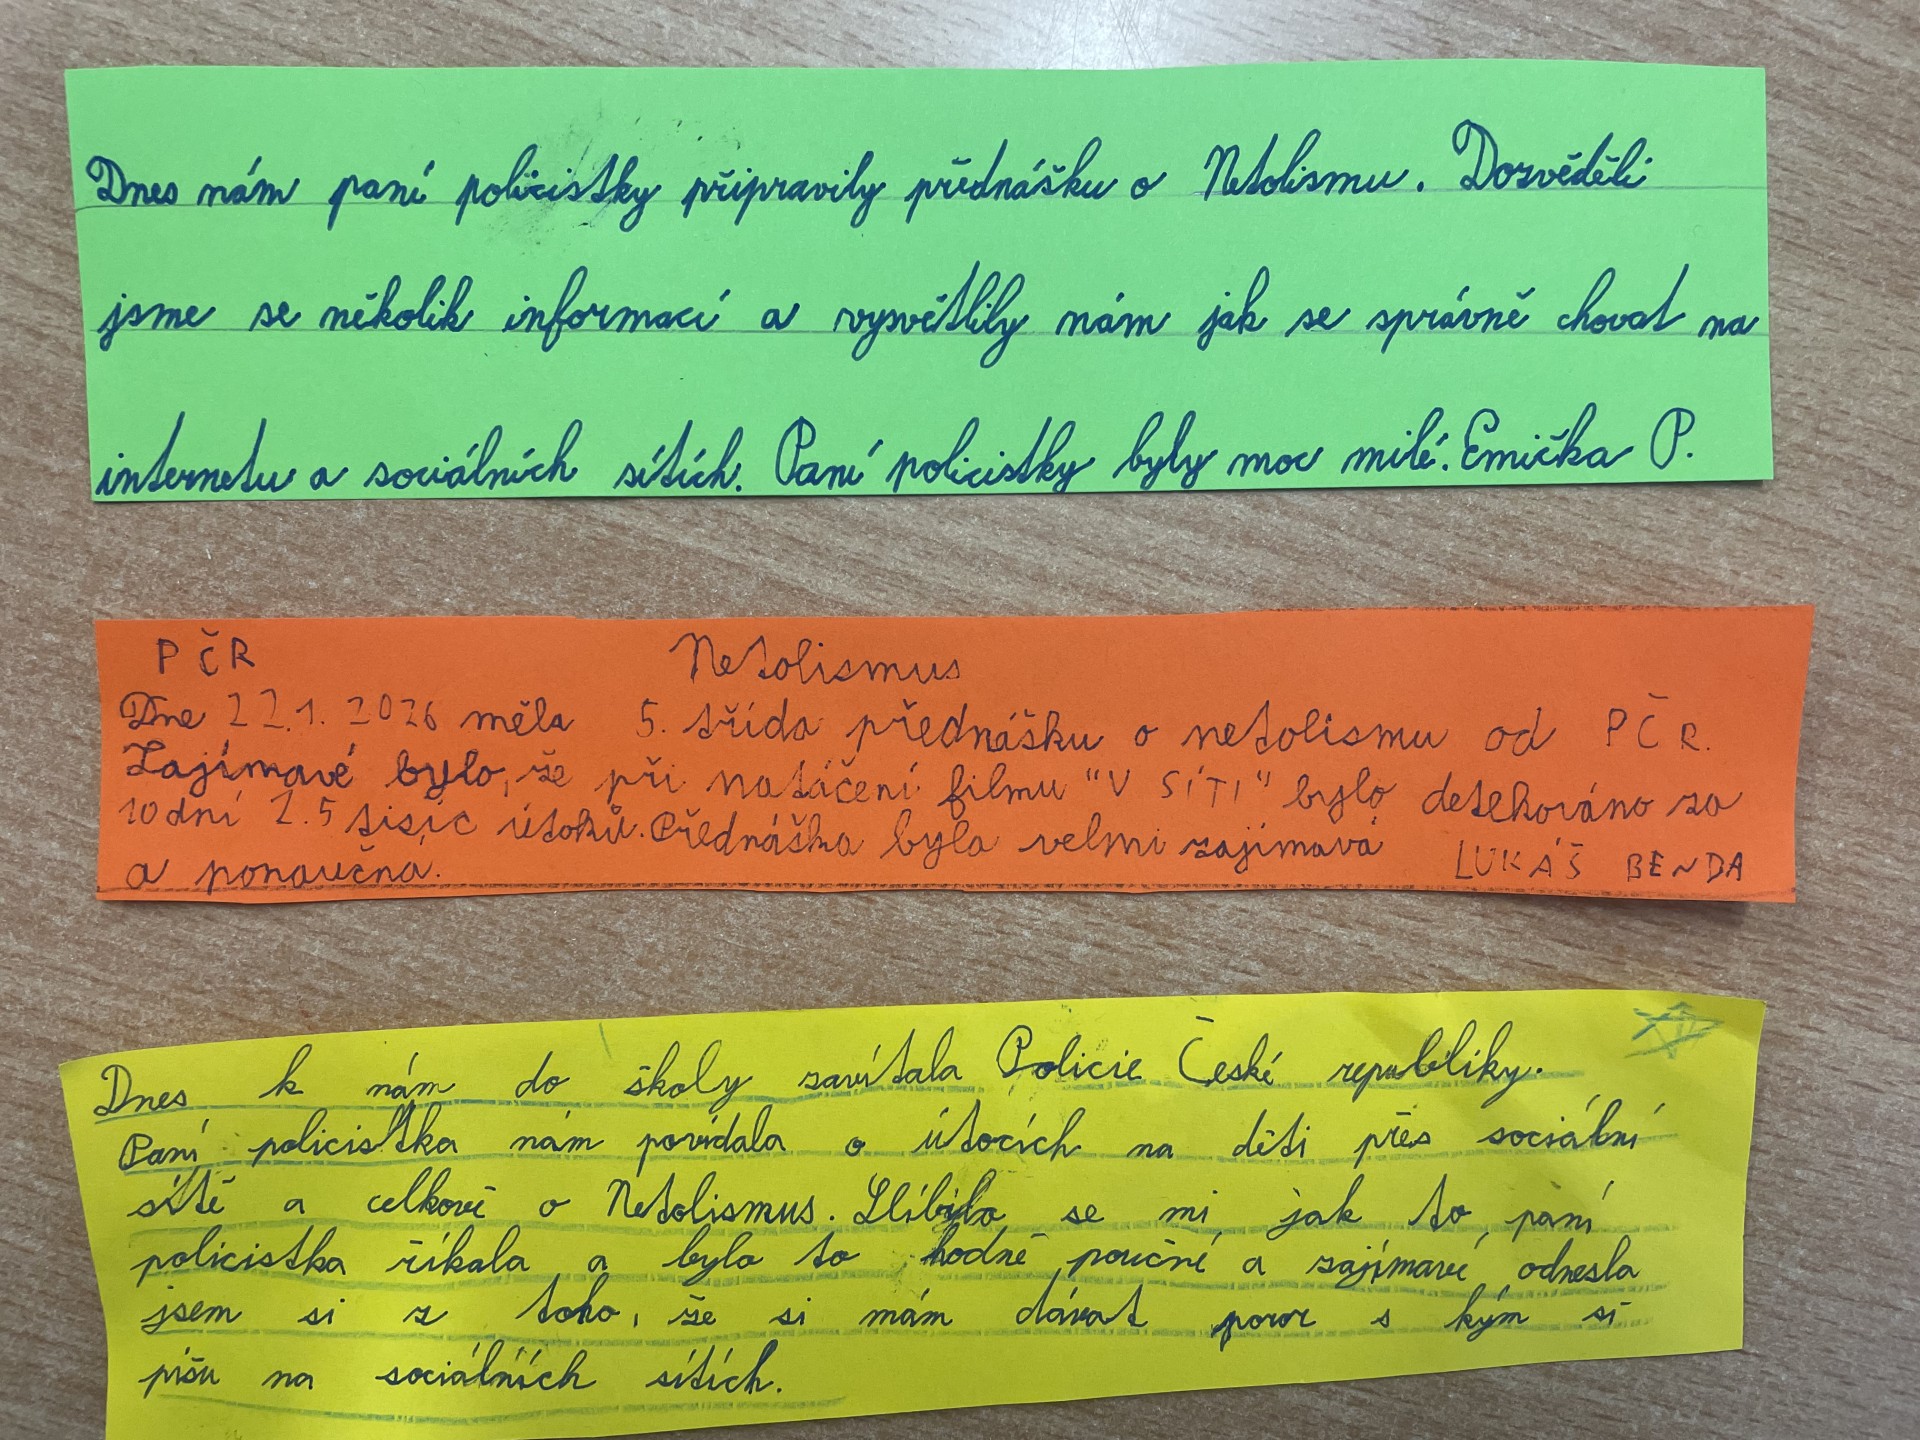 Dnes nám paní policistky připravily přednášku o Netolismu. Dozvěděli
jsme se několik informací a vysvětlily nám jak se správně chovat na
internetu a sociálních sítích. Paní policistky byly moc milé. Emička P.
PČR Netolismus
Dne 22.1. 2026 měla 5. třída přednášku o netolismu od PČR.
Zajímavé bylo, že při natáčení filmu "V SÍTI" bylo detekováno za
10 dní 2.5 tisíc útoků. Přednáška byla velmi zajímavá
a ponaučná. LUKÁŠ BENDA
Dnes k nám do školy zavítala Policie České republiky.
Paní policistka nám povídala o útocích na děti přes sociální
sítě a celkově o Netolismus. Llíbilo se mi jak to paní
policistka říkala a bylo to hodně poučné a zajímavé, odnesla
jsem si z toho, že si mám dávat pozor s kým si
píšu na sociálních sítích.